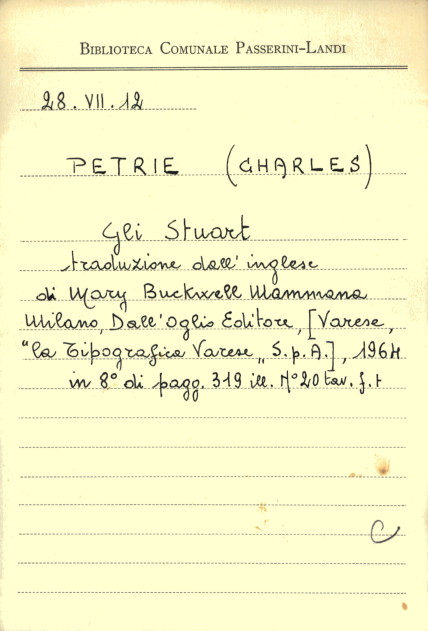 BIBLIOTECA COMUNALE PASSERINI-LANDI
28. VII. 12
PETRIE (CHARLES)
Gli Stuart
traduzione dall' inglese
di Mary Buckwell Mammana
Milano, Dall'Oglio Editore, [Varese,
"la Tipografica Varese„ S.p.A.], 1964
in 8° di pagg. 319 ill. N° 20 tav. f.t
C